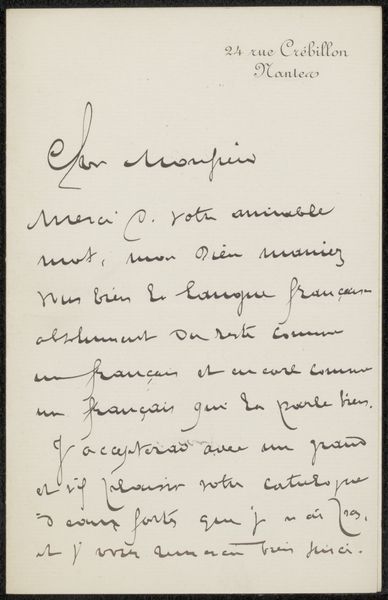 24 rue Crébillon
Nantes
Cher Monsieur
Merci p. votre aimable
mot, mon Dieu maniez
vous bien la langue française
absolument du reste comme
un français et encore comme
un français qui la parle bien.
J'accepterai avec un grand
et vif plaisir votre catalogue
d'eaux fortes que je n'ai pas,
et je vous remercie bien